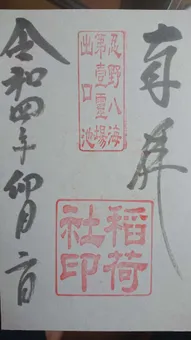 奉拝
忍野八海
第壹靈場
出口池
稻荷
社印
令和四年卯月二日